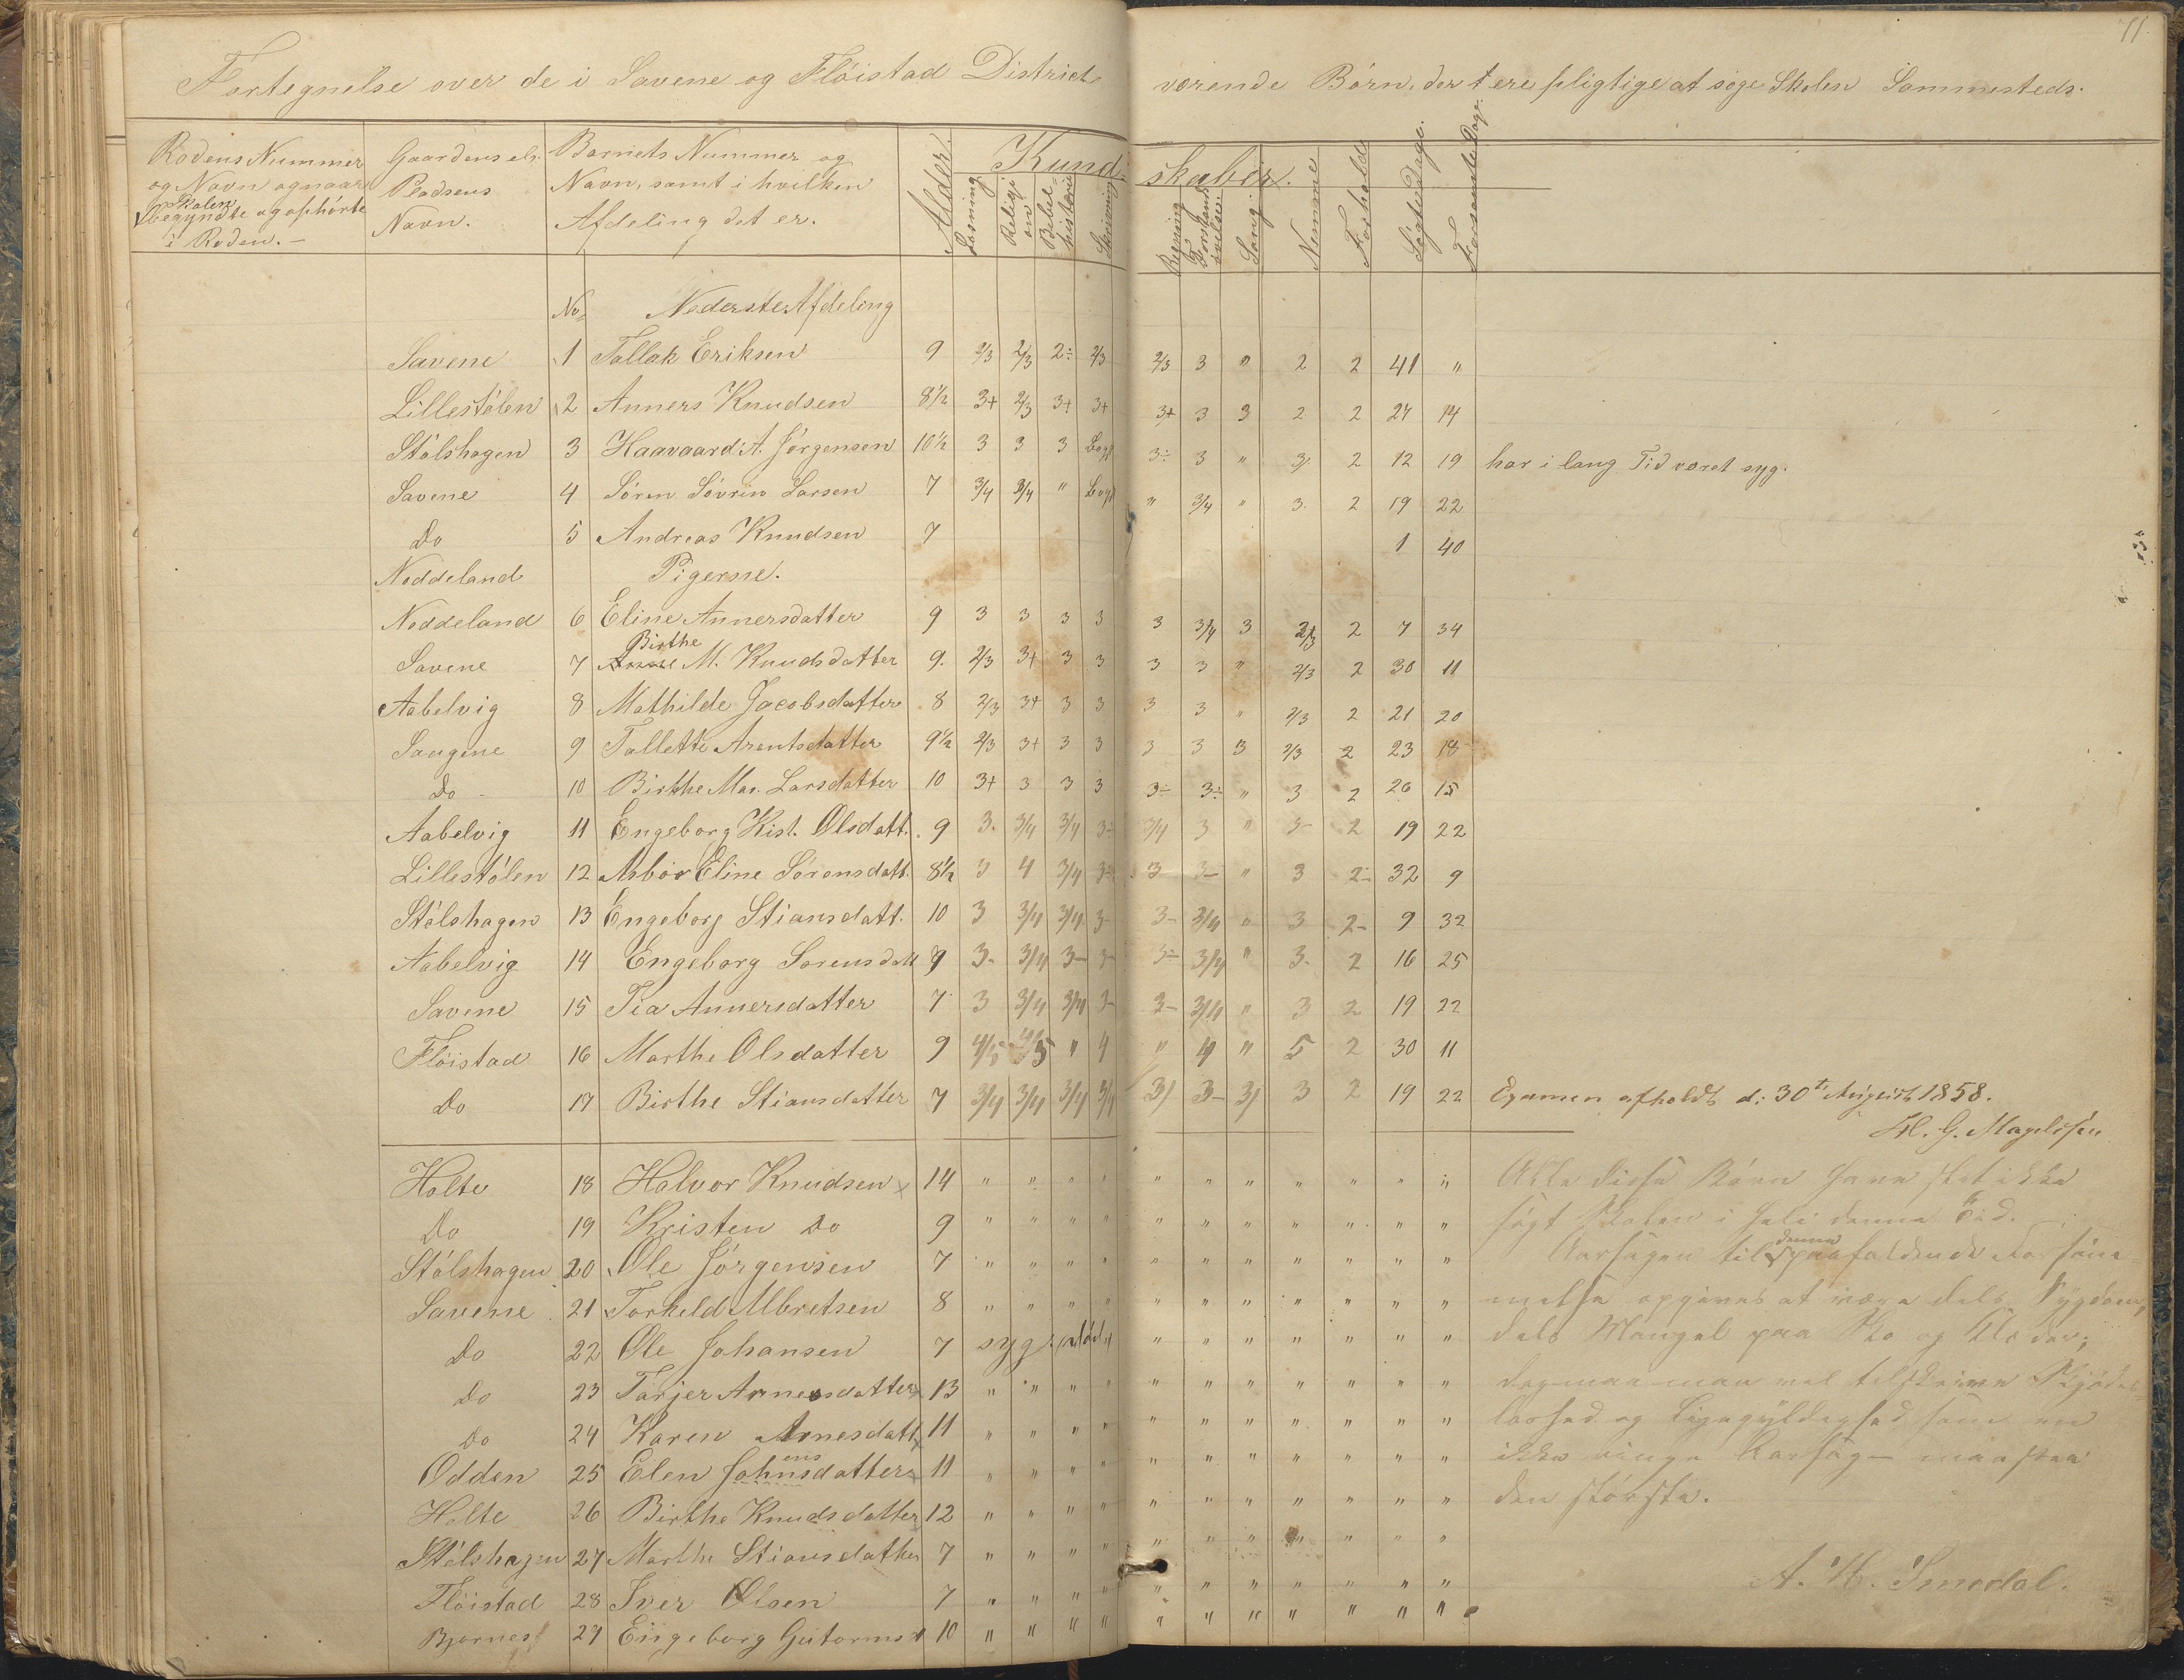 71.
Fortegnelse over de i Savene og Flöistad District værende Börn, der ere pligtige at söge Skolen Sammesteds.
Rodens Nummer og Navn og naar Skolen begyndte og ophörte i Roden. –
Gaardens el. Pladsens Navn.
Barnets Nummer og Navn, samt i hvilken Afdeling det er.
Alder.
Kundskaber.
Læsning Religion Bibelhistorie Skrivning Regning Forstandsövelse Sang Nemme Forholde Sögte Dage. Forsømte Dage.
No Nederste Afdeling
Savene 1 Tallak Eriksen 9 2/3 2/3 2÷ 2/3 2/3 3 " 2 2 41 "
Lillestölen 2 Anners Knudsen 8½ 3+ 2/3 3+ 3+ 3+ 3 3 2 2 27 14
Stölshagen 3 Haavaard A. Jörgensen 10½ 3 3 3 Bogst 3÷ 3 " 3 2 12 19 har i lang Tid været syg.
Savene 4 Sören Sövrin Larsen 7 3/4 3/4 " Bogst " 3/4 " 3. 2 19 22
Do 5 Andreas Knudsen 7 1 40
Noddeland Pigerne.
Noddeland 6 Eline Annersdatter 9 3 3 3 3 3 3/4 3 2/3 2 7 34
Savene 7 Birthe M. Knudsdatter 9. 2/3 3+ 3 3 3 3 " 2/3 2 30 11
Aabelvig 8 Mathilde Jacobsdatter 8 2/3 3+ 3 3 3 3 " 2/3 2 21 20
Saagene 9 Tallette Arentsdatter 9½ 2/3 3+ 3 3 3 3 3 2/3 2 23 18
Do 10 Birthe Mar. Larsdatter 10 3+ 3 3 3 3÷ 3÷ " 3 2 26 15
Aabelvig 11 Engeborg Kist. Olsdatt. 9 3. 3/4 3/4 3÷ 3/4 3 " 3- 2 19 22
Lillestölen 12 Asbor Eline Sörensdatt. 8½ 3 4 3/4 3÷ 3 3- " 3 2- 32 9
Stölshagen 13 Engeborg Stiansdatt. 10 3 3/4 3/4 3- 3- 3/4 " 3 2- 9 32
Aabelvig 14 Engeborg Sorensdatt 9 3- 3/4 3- 3- 3÷ 3/4 " 3- 2 16 25
Savene 15 Tia Annersdatter 7 3 3/4 3/4 3- 3- 3/4 " 3 2 19 22
Flöistad 16 Marthe Olsdatter 9 4/5 4/5 " 4 " 4 " 5 2 30 11
Do 17 Birthe Stiansdatter 7 3/4 3/4 3/4 3/4 3/ 3- 3/ 3 2 19 22 Examen afholdt d: 30te August 1858.
H. G. Magelssen
Holte 18 Halvor Knudsen x 14 " " " " " " " " " " " Alle disse Börn have slet ikke
Do 19 Kristen Do 9 " " " " " " " " " " " sögt Skolen i hele denne Tid.
Stölshagen 20 Ole Jörgensen 7 " " " " " " " " " " " Aarsagen til denne paafaldende Forsöm-
Savene 21 Torkeld Albretsen 8 " " " " " " " " " " " melse opgives at være dels Sygdom,
Do 22 Ole Johansen 7 syg " " " " " " " dels Mangel paa Sko og Klæder;
Do 23 Tarjer Arnesdatter x 13 " " " " " " " " " " " dog maa man vel tilskrive Skjödes-
Do 24 Karen Arnesdatt x 11 " " " " " " " " " " " löshed og Ligegyldighed som en
Odden 25 Elen Johnensdatter x 11 " " " " " " " " " " " ikke ringe Aarsag – maaskee
Holte 26 Birthe Knudsdatter x 12 " " " " " " " " " " " den störste.
Stölshagen 27 Marthe Stiansdatter 7 " " " " " " " " " " "
Flöistad 28 Iver Olsen 7 " " " " " " " " " " " A. H. Smedal.
Bjornes 29 Engeborg Gutormsd 10 " " " " " " " " " " "